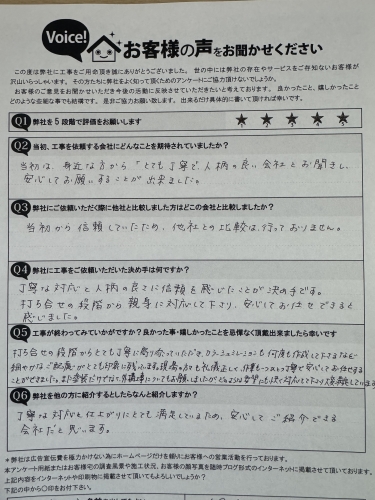 Voice!
お客様の声をお聞かせください
この度は弊社に工事をご用命頂き誠にありがとうございました。世の中には弊社の存在やサービスをご存知ないお客様が
沢山いらっしゃいます。その方たちに弊社をよく知って頂くためのアンケートにご協力頂けないでしょうか。
お客様のご意見をお聞かせいただき今後の活動に反映させていただきたいと考えております。良かったこと、嬉しかったこと
どのような些細な事でも結構です。是非ご協力お願い致します。出来るだけ具体的に書いて頂ければ幸いです。
Q1 弊社を5段階で評価をお願いします ★ ★ ★ ★ ★
Q2 当初、工事を依頼する会社にどんなことを期待されていましたか?
当初は、身近な方から「とても丁寧で、人柄の良い会社」とお聞きし、
安心してお願いすることが出来ました。
Q3 弊社にご依頼いただく際に他社と比較しました方はどこの会社と比較しましたか?
当初から信頼していたため、他社との比較は行っておりません。
Q4 弊社に工事をご依頼いただいた決め手は何ですか?
丁寧な対応と人柄の良さに信頼を感じたことが決め手です。
打ち合せの段階から親身に対応して下さり、安心してお任せできると
感じました。
Q5 工事が終わってみていかがですか?良かった事・嬉しかったことを忌憚なく頂戴出来ましたら幸いです
打ち合せの段階からとても丁寧に寄り添っていただき、カラーシュミレーションも何度も作成して下さるなど
細やかなご配慮がとても印象に残ります。現場の方も礼儀正しく、作業も一つ一つ丁寧で安心してお任せする
ことができました。また塗装だけでなく外構
Q6 弊社を他の方に紹介するとしたらなんと紹介しますか?
丁寧な対応と仕上がりにとても満足しているため、安心してご紹介できる
会社だと思います。
※弊社は広告宣伝費を極力かけない為にホームページだけを頼りにお客様への営業活動を行っております。
本アンケート用紙またはお客様宅の調査風景や施工状況、お客様の顔写真を随時ブログ形式のインターネットに掲載させて頂いております。
上記内容をインターネットや印刷物に掲載させて頂いてもよろしいでしょうか?
下記の中から〇印をお付下さい。